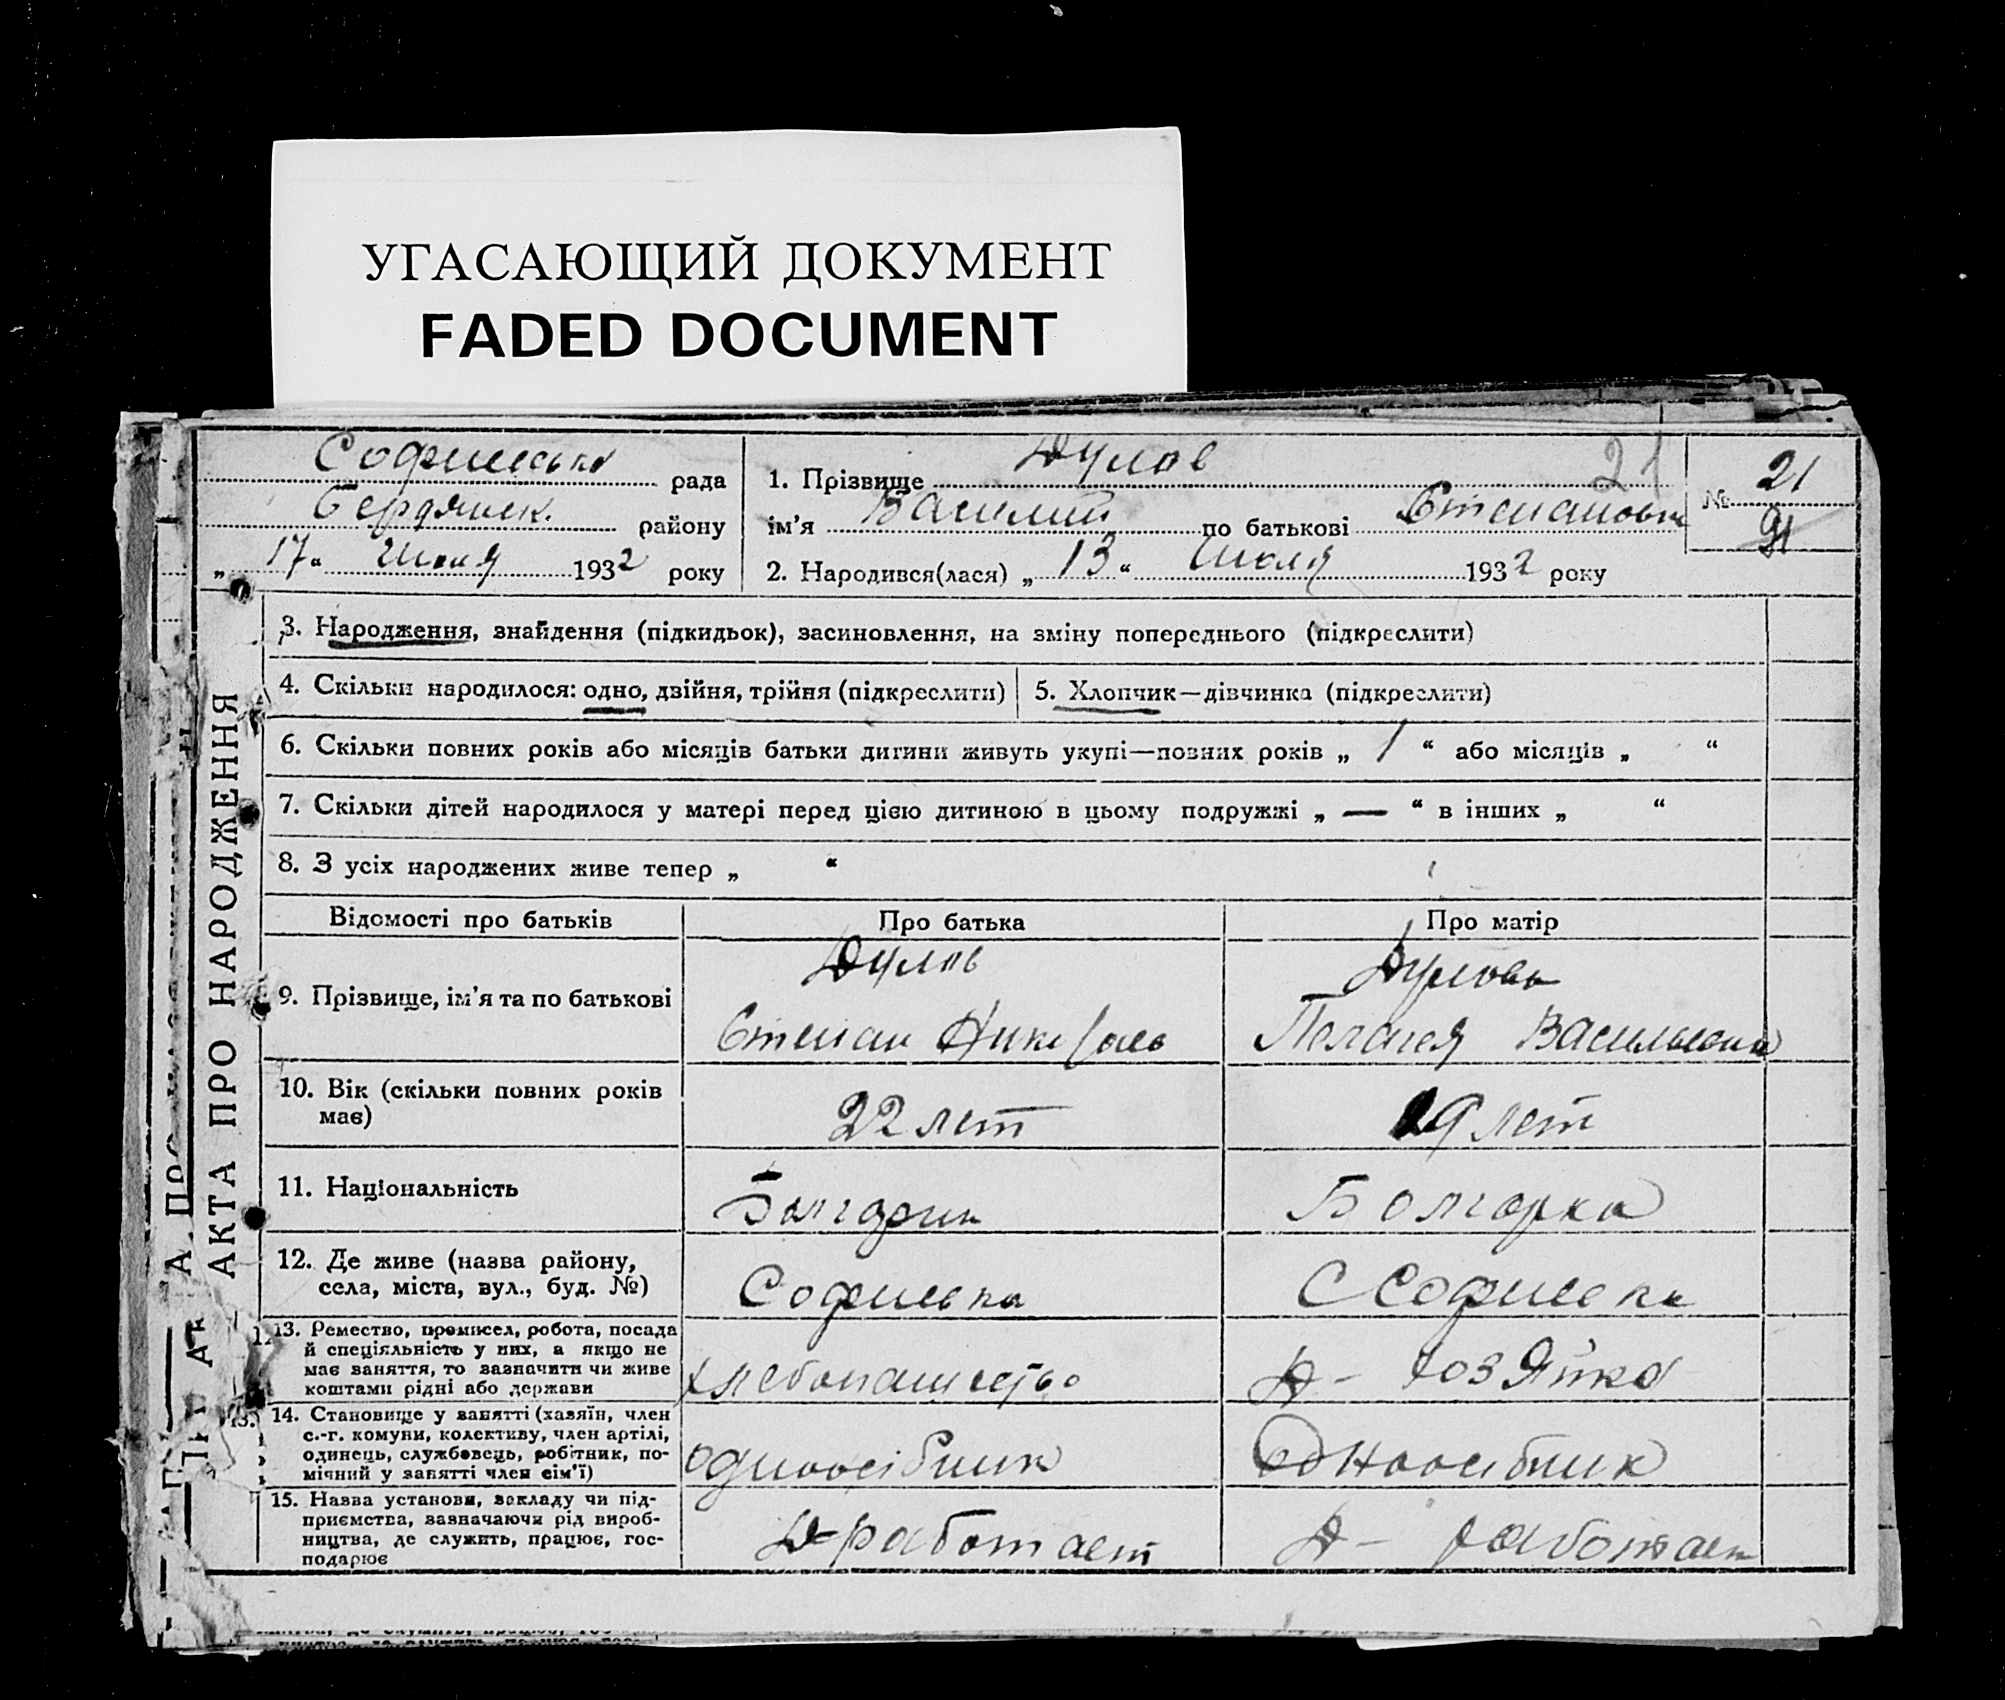 УГАСАЮЩИЙ ДОКУМЕНТ
FADED DOCUMENT
Софиевська рада
Бердянск. району
„17“ Июля 1932 року
1. Прізвище Дулов 21
ім’я Василий по батькові Степанович
2. Народився(лася) „13“ Июля 1932 року
№ 21
91
АКТА ПРО НАРОДЖЕННЯ
3. Народження, знайдення (підкидьок), засиновлення, на зміну попереднього (підкреслити)
4. Скільки народилося: одно, двійня, трійня (підкреслити)
5. Хлопчик—дівчинка (підкреслити)
6. Скільки повних років або місяців батьки дитини живуть укупі—повних років „ 1 “ або місяців „ “
7. Скільки дітей народилося у матері перед цією дитиною в цьому подружжі „ — “ в інших „ “
8. З усіх народжених живе тепер „ “
Відомості про батьків Про батька Про матір
9. Прізвище, ім’я та по батькові
Дулов
Степан
Дулова
Пелагея Васильевна
10. Вік (скільки повних років
має)
22 лет
19 лет
11. Національність
Болгарин
Болгарка
12. Де живе (назва району,
села, міста, вул., буд. №)
Софиевка
С Софиевка
13. Ремество, промисел, робота, посада
й спеціяльність у них, а якщо не
має заняття, то зазначити чи живе
коштами рідні або держави
хлебопашество
Д- хозяйка
14. Становище у занятті (хазяїн, член
с.-г. комуни, колективу, член артілі,
одинець, службовець, робітник, по-
мічний у занятті член сім’ї)
одноосібник
Одноосібник
15. Назва установи, закладу чи під-
приємства, зазначаючи рід вироб-
ництва, де служить, працює, гос-
подарює
Д-работает
Д- работает